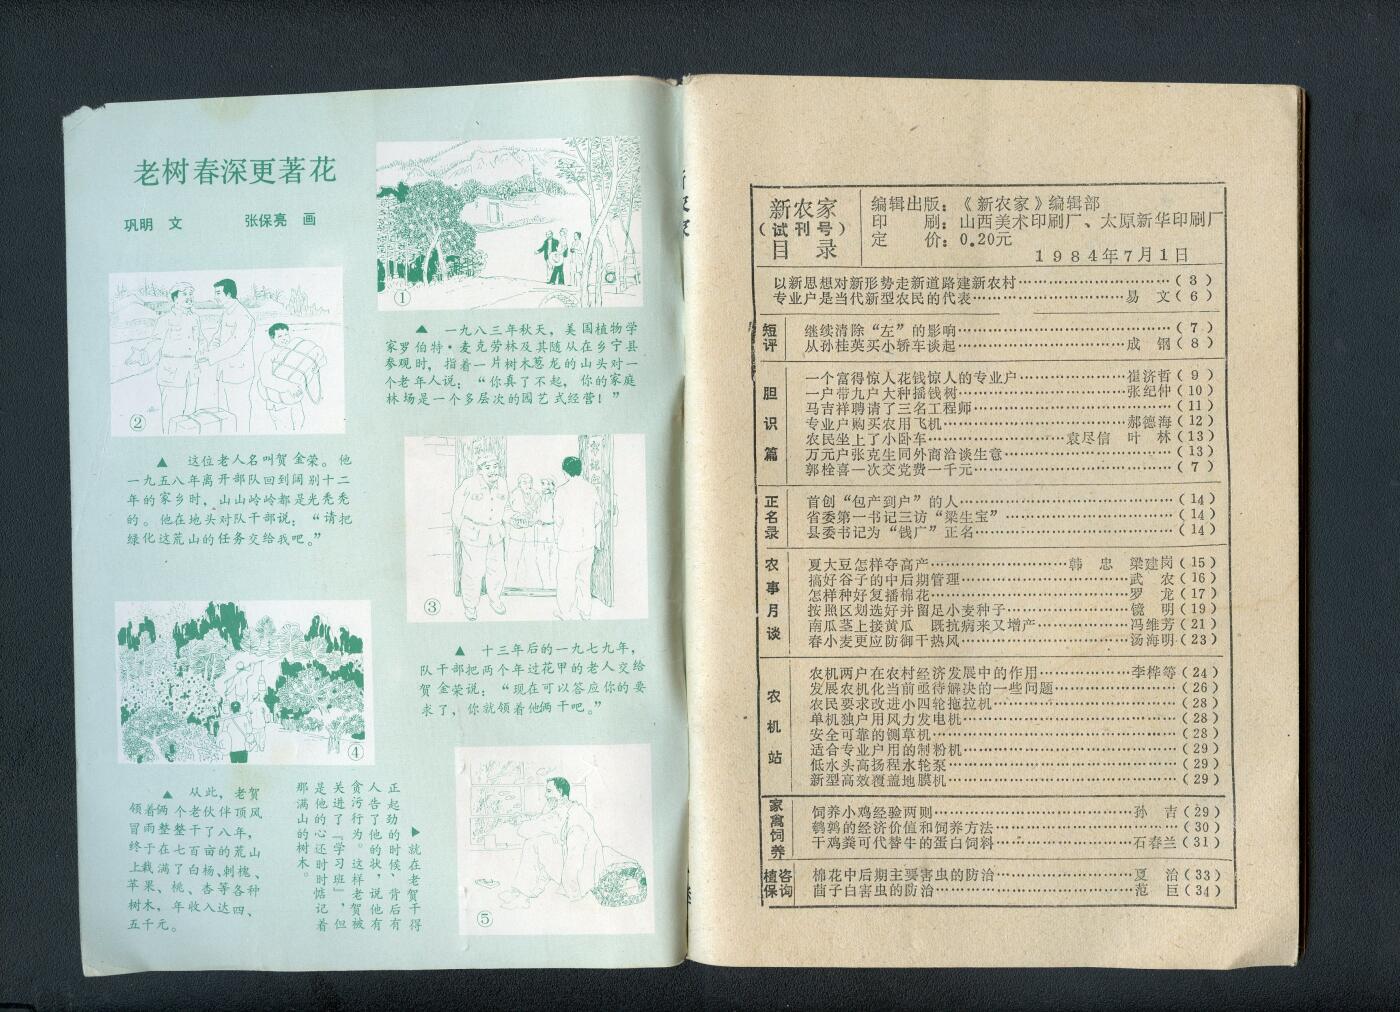 老树春深更著花
巩明 文 张保亮 画
①
▲ 一九八三年秋天，美国植物学
家罗伯特·麦克劳林及其随从在乡宁县
参观时，指着一片树木葱茏的山头对一
个老年人说：“你真了不起，你的家庭
林场是一个多层次的园艺式经营！”
②
▲ 这位老人名叫贺金荣。他
一九五八年离开部队回到阔别十二
年的家乡时，山山岭岭都是光秃秃
的。他在地头对队干部说：“请把
绿化这荒山的任务交给我吧。”
③
▲ 十三年后的一九七九年，
队干部把两个年过花甲的老人交给
贺金荣说：“现在可以答应你的要
求了，你就领着他俩干吧。”
④
▲ 从此，老贺
领着俩个老伙伴顶风
冒雨整整干了八年，
终于在七百亩的荒山
上栽满了白杨、刺槐、
苹果、桃、杏等各种
树木，年收入达四、
五千元。
▶就在老贺干得
正起劲的时候、背后有
人告了他的状，说他有
贪污行为。这样老贺被
关进了『学习班』，但
是他的心还时时惦记着
那满山的树木。
⑤
新农家
（试刊号）
目 录
编辑出版：《新农家》编辑部
印 刷：山西美术印刷厂、太原新华印刷厂
定 价：0.20元
1984年7月1日
以新思想对新形势走新道路建新农村…………………………（3）
专业户是当代新型农民的代表…………………………易 文（6）
短评
继续清除“左”的影响…………………………（7）
从孙桂英买小轿车谈起…………………………成 钢（8）
胆识篇
一个富得惊人花钱惊人的专业户…………………………崔济哲（9）
一户带九户大种摇钱树…………………………张纪仲（10）
马吉祥聘请了三名工程师…………………………（11）
专业户购买农用飞机…………………………郝德海（12）
农民坐上了小卧车…………………………袁尽信 叶 林（13）
万元户张克生同外商洽谈生意…………………………（13）
郭栓喜一次交党费一千元…………………………（7）
正名录
首创“包产到户”的人…………………………（14）
省委第一书记三访“梁生宝”…………………………（14）
县委书记为“钱广”正名…………………………（14）
农事月谈
夏大豆怎样夺高产…………………………韩 忠 梁建岗（15）
搞好谷子的中后期管理…………………………武 农（16）
怎样种好复播棉花…………………………罗 龙（17）
按照区划选好并留足小麦种子…………………………镜 明（19）
南瓜茎上接黄瓜 既抗病来又增产…………………………冯维芳（21）
春小麦更应防御干热风…………………………汤海明（23）
农机站
农机两户在农村经济发展中的作用…………………………李桦等（24）
发展农机化当前亟待解决的一些问题…………………………（26）
农民要求改进小四轮拖拉机…………………………（28）
单机独户用风力发电机…………………………（28）
安全可靠的铡草机…………………………（28）
适合专业户用的制粉机…………………………（29）
低水头高扬程水轮泵…………………………（29）
新型高效覆盖地膜机…………………………（29）
家禽饲养
饲养小鸡经验两则…………………………孙 吉（29）
鹌鹑的经济价值和饲养方法…………………………（30）
干鸡粪可代替牛的蛋白饲料…………………………石春兰（31）
植保咨询
棉花中后期主要害虫的防治…………………………夏 治（33）
茴子白害虫的防治…………………………范 巨（34）